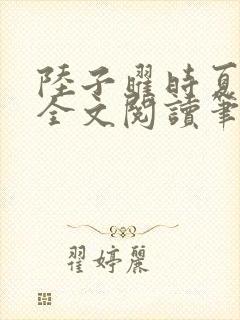 陸子曜時夏
全文閱讀筆
翟婷麗